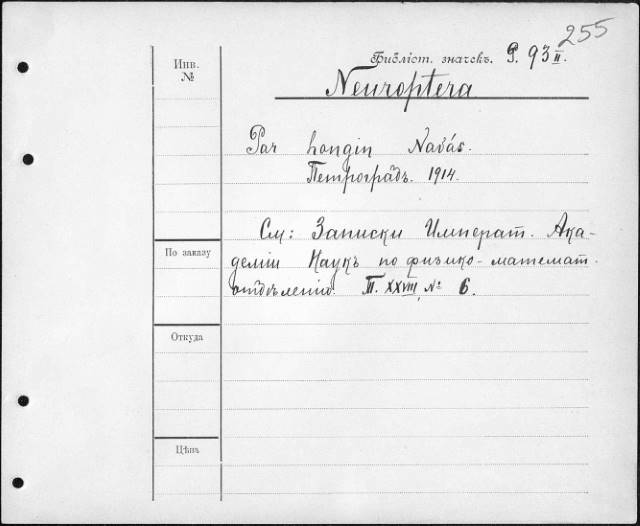 255
Инв.
№
Библіот. значекъ. P. 93 II.
Neuroptera
Par Longin Navás.
Петроградъ. 1914.
См: Записки Императ. Ака-
По заказу
деміи Наукъ по физико-математ.
отдѣленію. Т. XXVIII, № 6.
Откуда
Цѣнъ